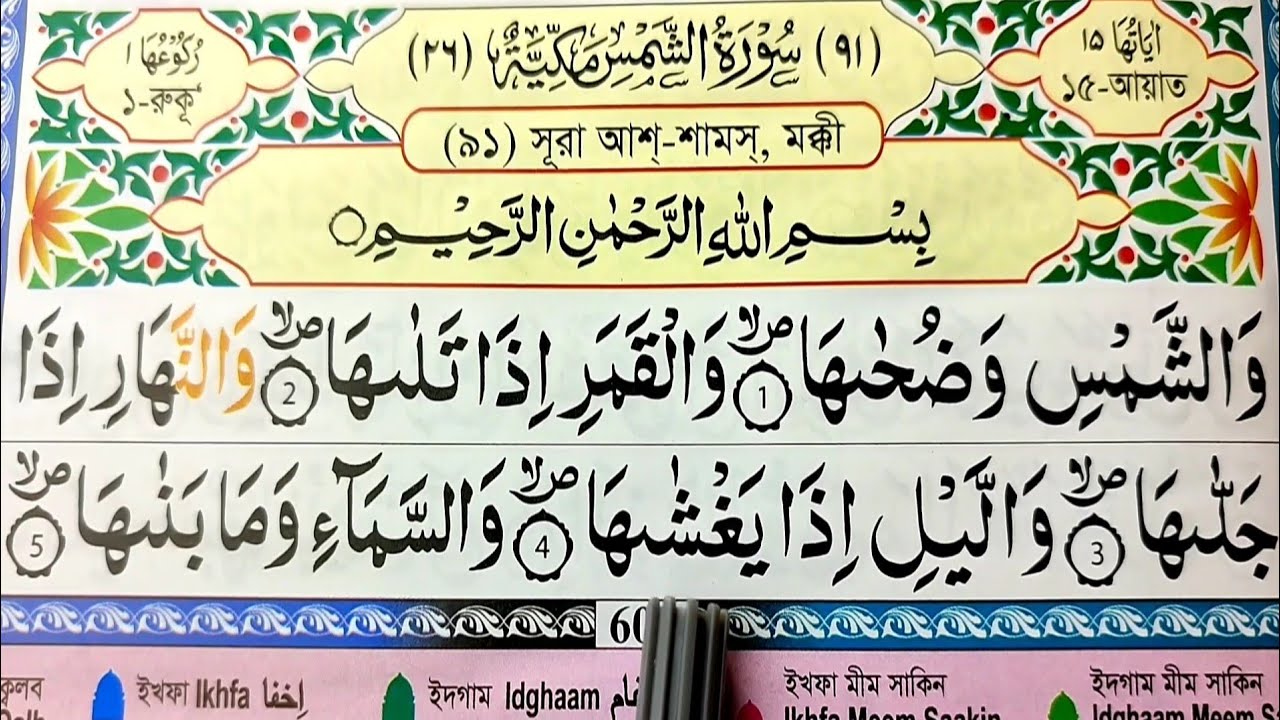 اٰيَاتُهَا ١٥
১৫-আয়াত
(٩١) سُوْرَةُ الشَّمْسِ مَكِّيَّةٌ (٢٦)
رُكُوْعُهَا ١
১-রুকূ‘
(৯১) সূরা আশ্-শামস্, মক্কী
بِسْمِ اللهِ الرَّحْمٰنِ الرَّحِيْمِ
وَالشَّمْسِ وَضُحٰىهَا ۪ۙ 1 وَالْقَمَرِ اِذَا تَلٰىهَا ۪ۙ 2 وَالنَّهَارِ اِذَا
جَلّٰىهَا ۪ۙ 3 وَالَّيْلِ اِذَا يَغْشٰىهَا ۪ۙ 4 وَالسَّمَآءِ وَمَا بَنٰىهَا ۪ۙ 5
ইখফা Ikhfa اِخْفَا
ইদগাম Idghaam
ইখফা মীম সাকিন
Ikhfa Meem Saakin
ইদগাম মীম সাকিন
Idghaam Meem